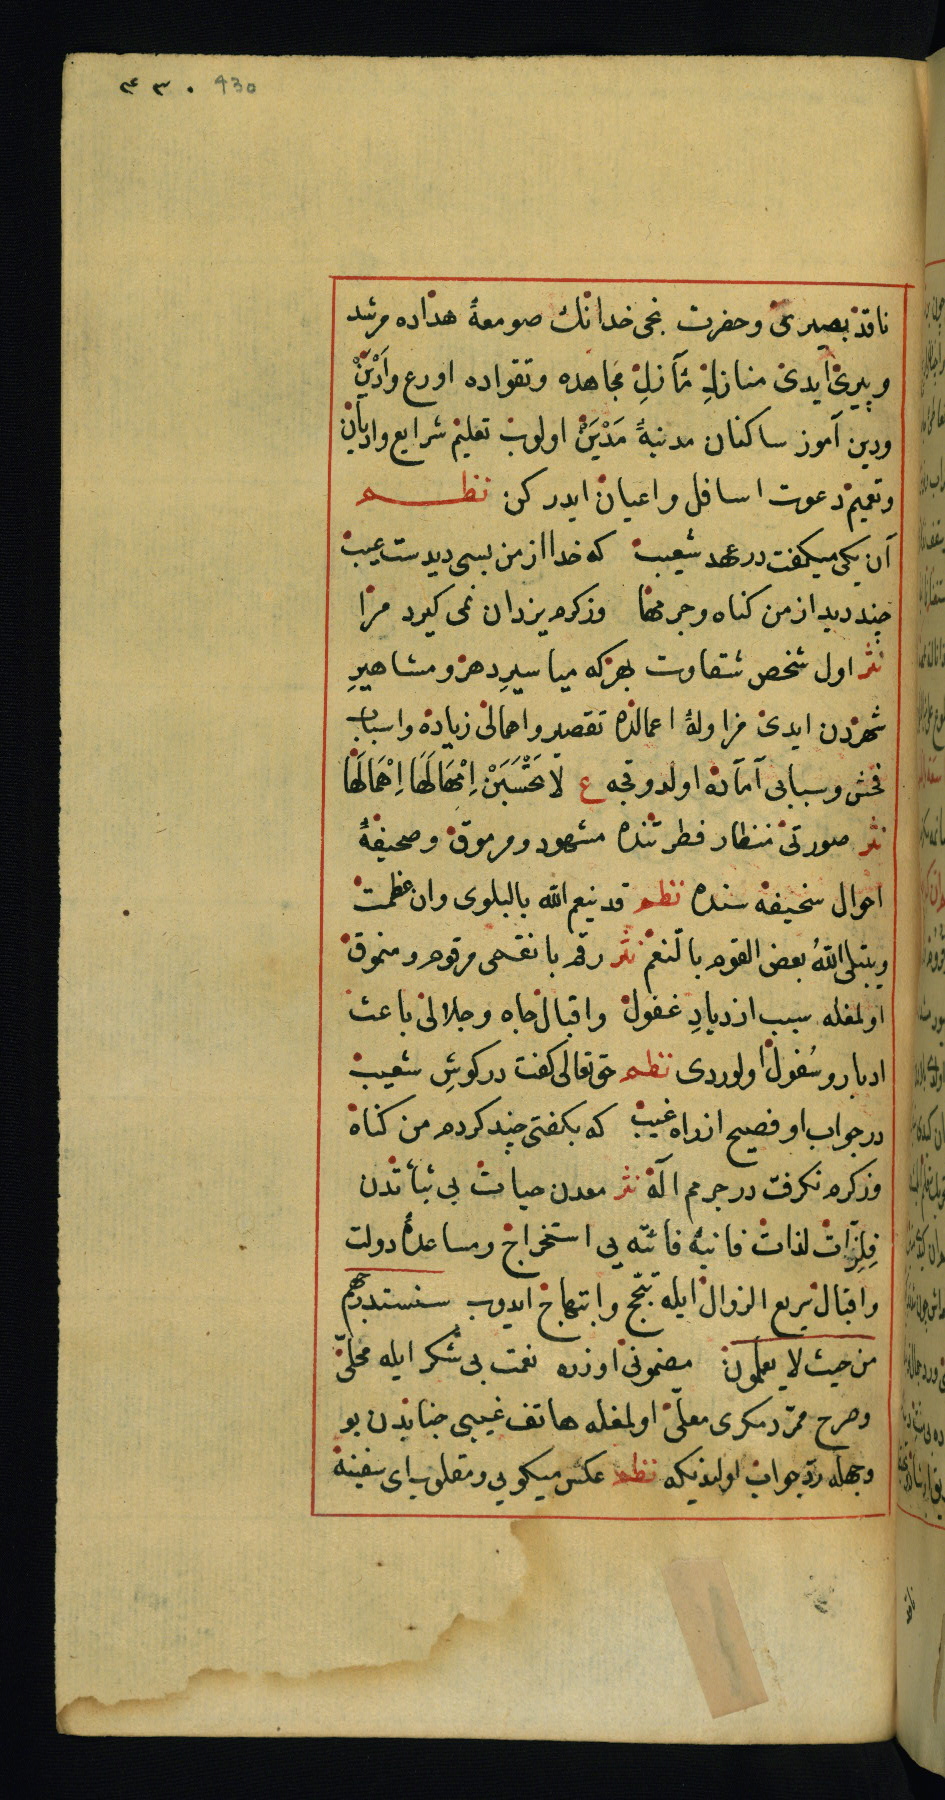 ٤٣٠ 430
ناقد بصیری و حضرت نجی خدانك صومعهٔ هداده مرشد
و پیری ایدی منازلِ مآزلِ مجاهده و تقواده اورع وَاَدْیَنْ
و دین آموز ساکنان مدنیهٔ مَدْیَنْ اولوب تعلیم شرایع و ادیان
و تعمیم دعوت اسافل و اعیان ایدر کن نظم
آن یکی میکفت در عهد شعیب که خدا از من بسی دیدست عیب
چند دید از من کناه و جرمها وز کرم یزدان نمی کیرد مرا
نثر اول شخص شقاوت بهر که میاسیرِ دهر و مشاهیرِ
شهردن ایدی مزاولهٔ اعمالده تقصیر و اهمالی زیاده و اسباب
فحش و سبابی آماده اولدوقجه ع لَا تَحْسَبَنْ اِمْهَالَهَا اِهْمَالَهَا
نثر صورتی ننظار فطرتنده مشهود و مرموق و صحیفهٔ
احوال سخیفه سنده نظم قد ینعم الله بالبلوی وان عظمت
ویبتلی اللهُ بعض القوم بالنعم نثر رقم یا نقمی مرقوم و منموق
اولمغله سبب ازدیادِ غفول و اقبال جاه و جلالی باعث
ادبار و سُفول اولوردی نظم حق تعالی کفت در کوشِ شعیب
در جواب او فصیح از راه غیب که بکفتی چند کردم من کناه
وز کرم نکرفت در جرمم اله نثر معدن حیات بی ثباتدن
فِلِزّات لذات فانیهٔ فائته یی استخراج و مساعدهٔ دولت
و اقبال سریع الزوال ایله تبجّح و ابتهاج ایدوب سنستدرجهم
من حیث لا یعلمون مضمونی اوزره نعمت بی شکر ایله محلّی
و صرح ممرّد مکری معلّی اولمغله هاتف غیبی جنابندن بو
وجهله ردّ جواب اولندیکه نظم عکس میکویی و مقلوب ای سفیه